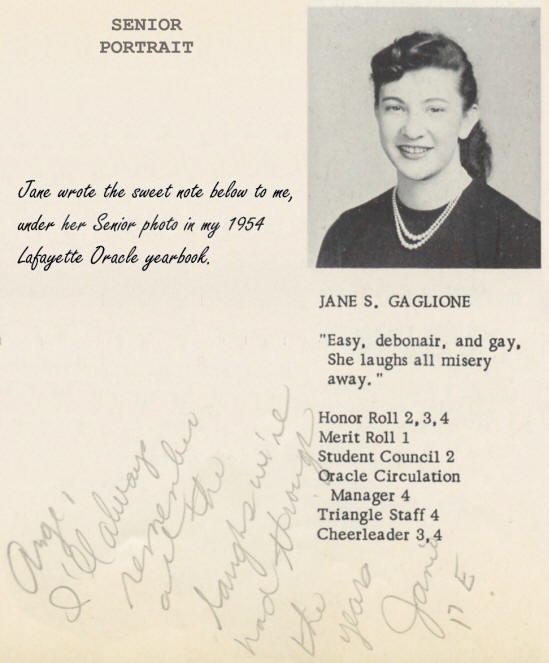 SENIOR
PORTRAIT
Jane wrote the sweet note below to me,
under her Senior photo in my 1954
Lafayette Oracle yearbook.
JANE S. GAGLIONE
"Easy, debonair, and gay,
She laughs all misery
away."
Honor Roll 2,3,4
Merit Roll 1
Student Council 2
Oracle Circulation
Manager 4
Triangle Staff 4
Cheerleader 3,4
Ange,
I'll always
remember
all the
laughs we've
had through
the
years
Janie